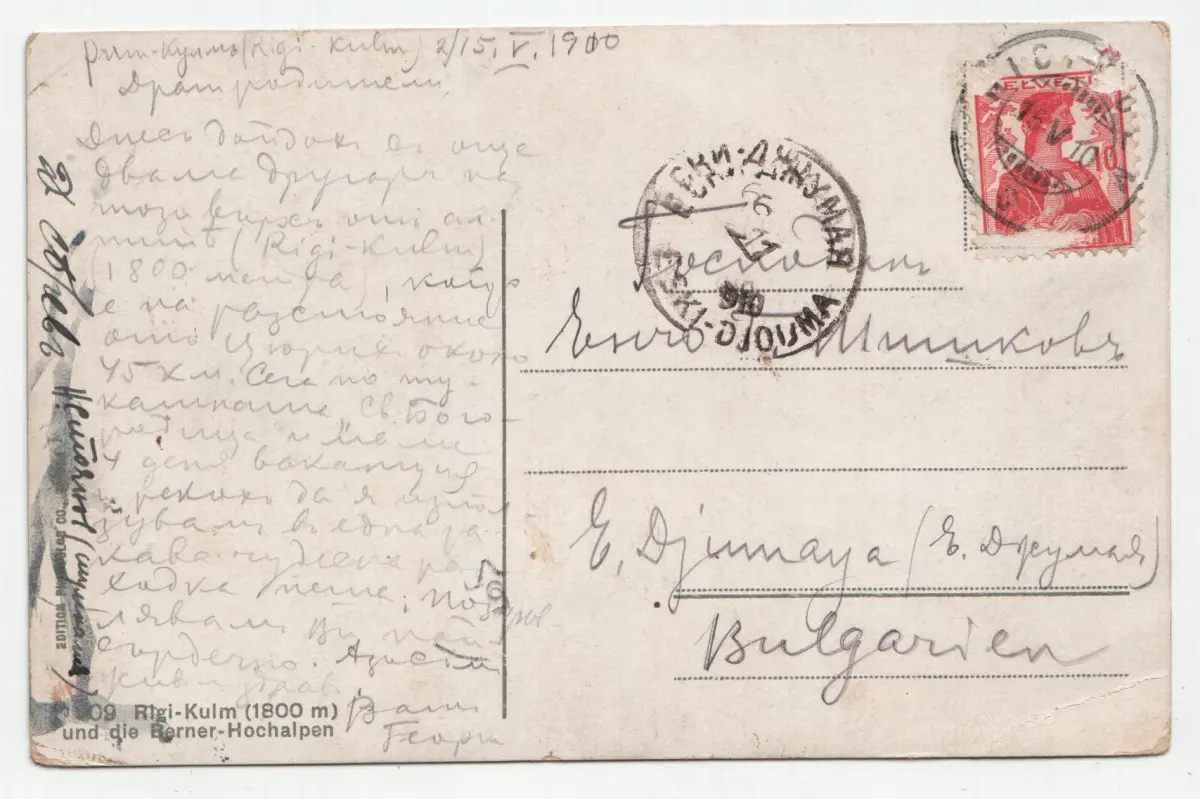 Риги-Кулмъ (Rigi-Kulm) 2/15.V.1910
Драги родители,
Днесь дойдохъ съ още
двама другарь на
този върхъ отъ ал-
питѣ (Rigi-Kulm)
(1800 метра), който
е на разстояние
отъ Цюрихъ около
45 км. Сега по ту-
кашната Св. Бого-
родица имаме
4 деня ваканция
и рекохъ да я изпол
зувамъ въ една та-
кава чудесна раз-
ходка пеша. Поздра-
влявамъ Ви най
сърдечно. Азъ съмъ
живъ и здравъ
Вашъ
Георги
EDITION PHOTOGLOB CO.
09 Rigi-Kulm (1800 m)
und die Berner-Hochalpen
167
HELVETIA
16.V.10
ЕСКИ-ДЖУМАЯ
26
V
910
ESKI-DJOUMA
Господинъ
Енчо Шишковъ
E. Djumaya (Е. Джумая)
Bulgarien